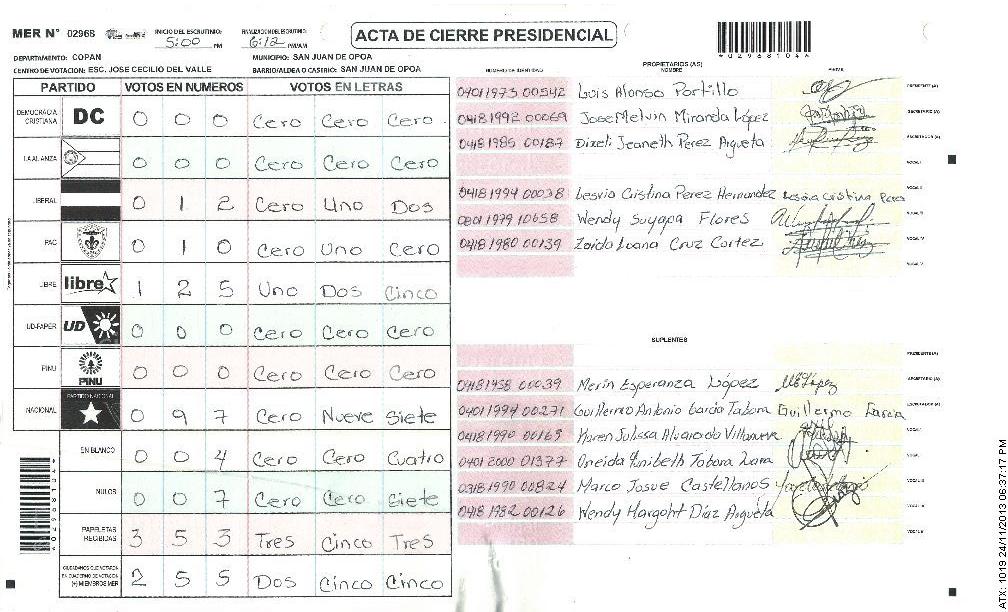 MER N° 02968 INICIO DEL ESCRUTINIO: 5:00 PM FINALIZACION DEL ESCRUTINIO: 6:12 PM/AM
ACTA DE CIERRE PRESIDENCIAL
*029681046*
DEPARTAMENTO: COPAN MUNICIPIO: SAN JUAN DE OPOA
CENTRO DE VOTACION: ESC. JOSE CECILIO DEL VALLE BARRIO/ALDEA O CASERIO: SAN JUAN DE OPOA
PARTIDO VOTOS EN NUMEROS VOTOS EN LETRAS
DEMOCRACIA CRISTIANA DC 0 0 0 Cero Cero Cero
LA ALIANZA 0 0 0 Cero Cero Cero
LIBERAL 0 1 2 Cero Uno Dos
PAC 0 1 0 Cero Uno Cero
LIBRE libre 1 2 5 Uno Dos Cinco
UD-FAPER UD 0 0 0 Cero Cero Cero
PINU PINU 0 0 0 Cero Cero Cero
NACIONAL PARTIDO NACIONAL 0 9 7 Cero Nueve Siete
EN BLANCO 0 0 4 Cero Cero Cuatro
NULOS 0 0 7 Cero Cero Siete
PAPELETAS RECIBIDAS 3 5 3 Tres Cinco Tres
CIUDADANOS QUE VOTARON EN CUADERNO DE VOTACION (+) MIEMBROS MER 2 5 5 Dos Cinco Cinco
PROPIETARIOS (AS)
NUMERO DE IDENTIDAD NOMBRE FIRMA
0401 1973 00542 Luis Alonso Portillo PRESIDENTE (A)
0418 1992 00069 Jose Melvin Miranda López SECRETARIO (A)
0418 1985 00187 Dixeli Jeaneth Perez Argueta ESCRUTADOR (A)
VOCAL I
0418 1994 00038 Lesvia Cristina Perez Hernandez Lesvia Cristina Perez VOCAL II
0801 1979 10658 Wendy Suyapa Flores VOCAL III
0418 1980 00139 Zoida Luana Cruz Cortez VOCAL IV
VOCAL V
SUPLENTES
PRESIDENTE (A)
0418 1958 00039 Merin Esperanza López SECRETARIO (A)
0401 1994 00271 Guillermo Antonio Garcia Tabora Guillermo Garcia ESCRUTADOR (A)
0418 1990 00169 Karen Julissa Alvarado Villanueva VOCAL I
0401 2000 01377 Oneida Yunibeth Tabora Lara VOCAL II
0318 1990 00824 Marco Josue Castellanos VOCAL III
0418 1982 00126 Wendy Margoht Díaz Argueta VOCAL IV
VOCAL V
ATX: 1019 24/11/2013 06:37:17 PM